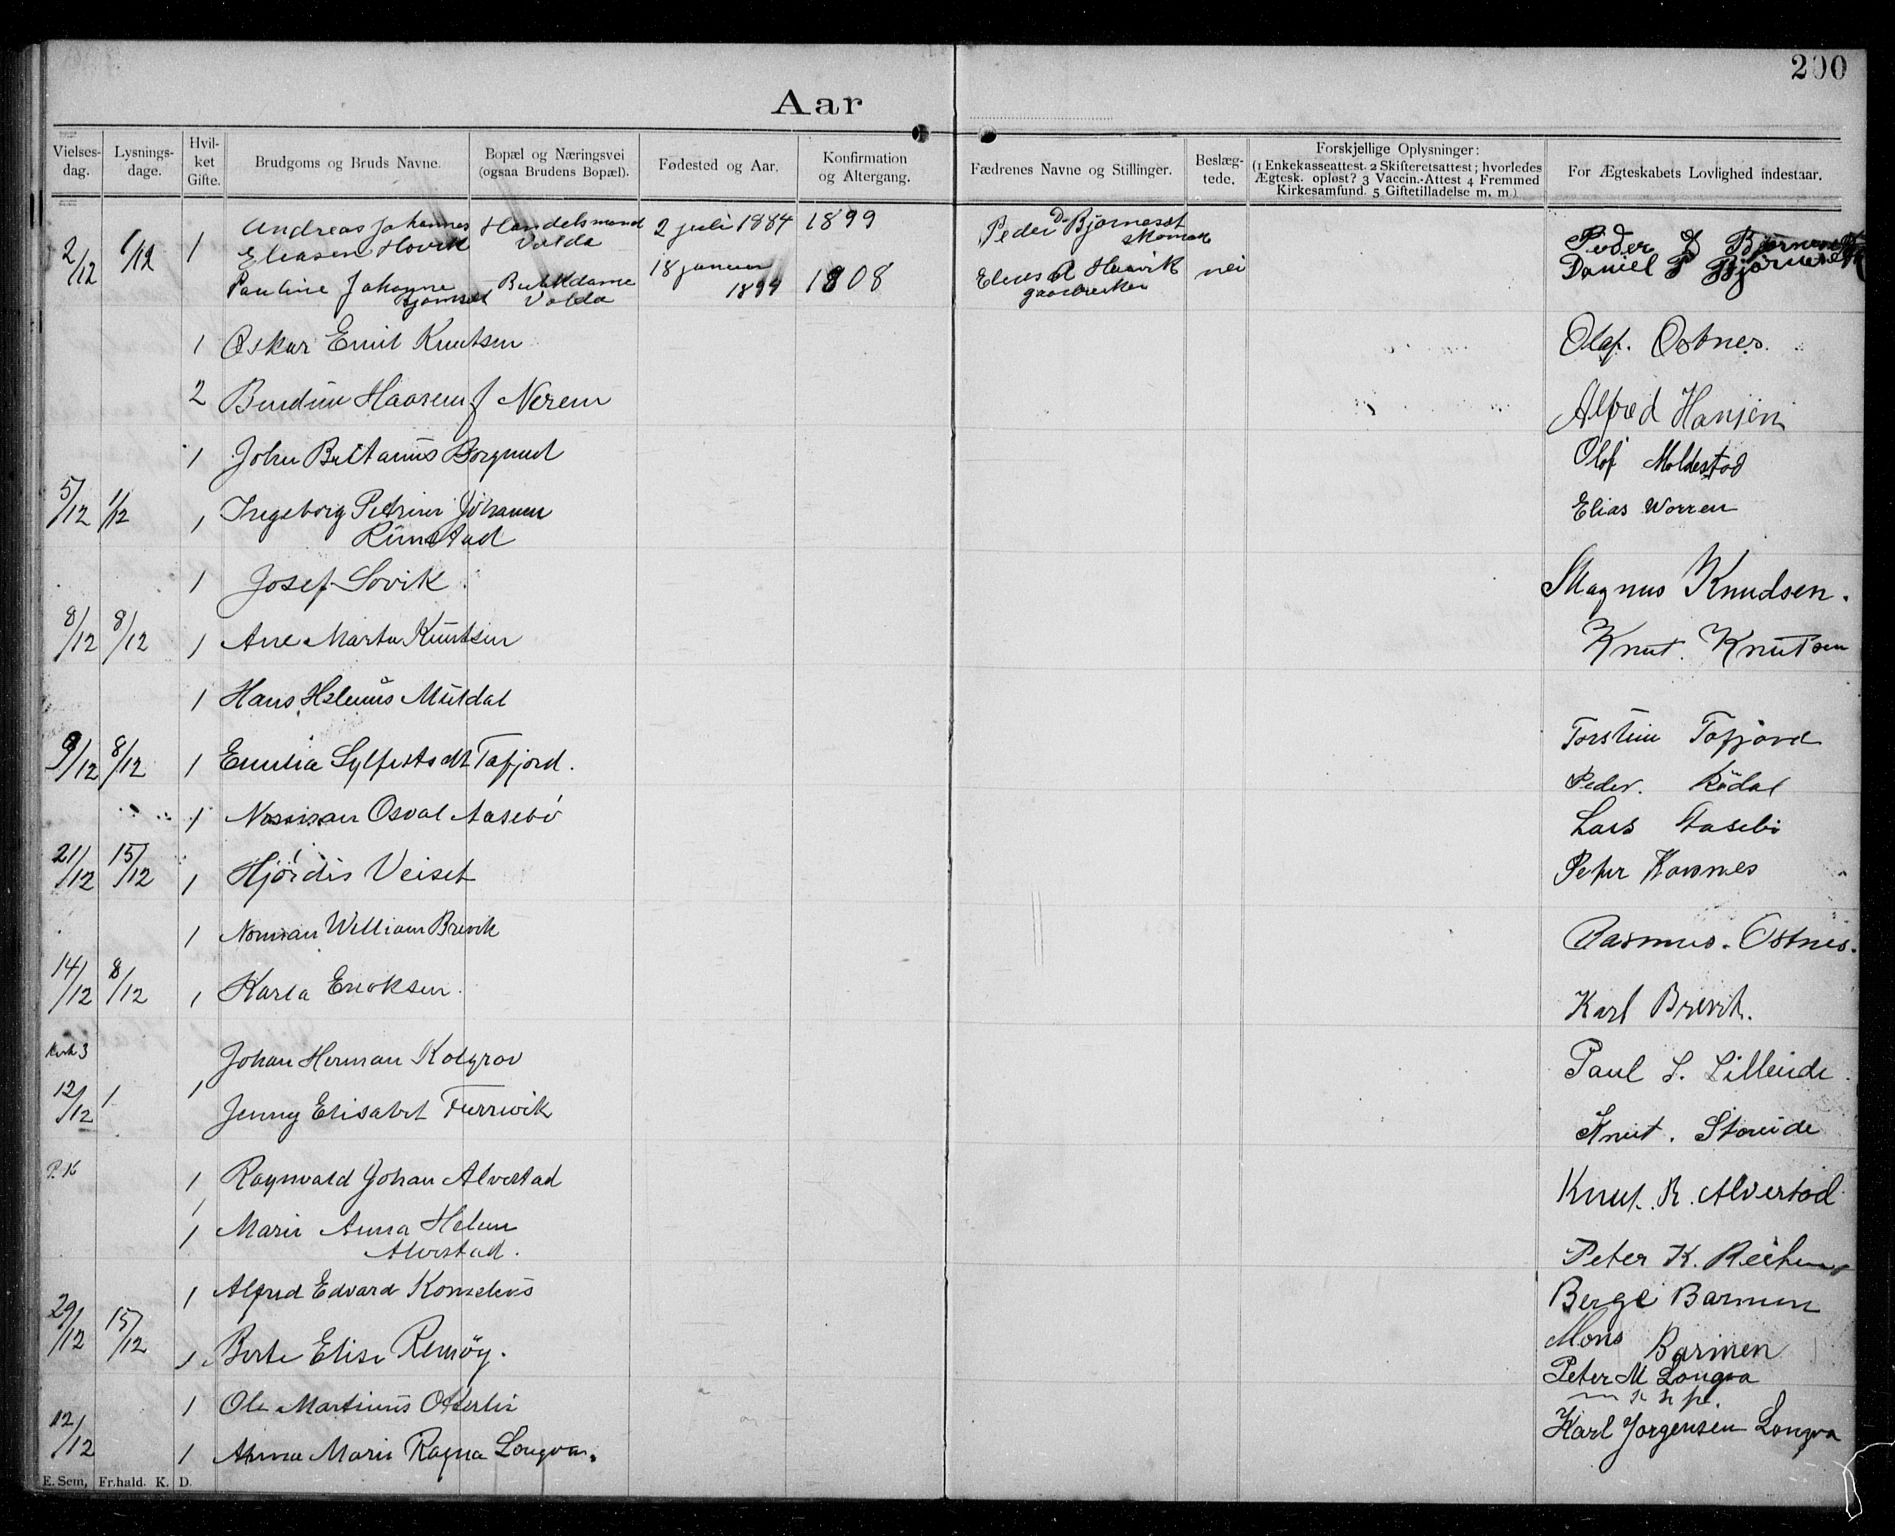 200
Aar
Vielses-
dag.
Lysnings-
dage.
Hvil-
ket
Gifte.
Brudgoms og Bruds Navne.
Bopæl og Næringsvei
(ogsaa Brudens Bopæl).
Fødested og Aar.
Konfirmation
og Altergang.
Fædrenes Navne og Stillinger.
Beslæg-
tede.
Forskjellige Oplysninger:
(1 Enkekasseattest. 2 Skifteretsattest; hvorledes
Ægtesk. opløst? 3 Vaccin.-Attest 4 Fremmed
Kirkesamfund. 5 Giftetilladelse m. m.)
For Ægteskabets Lovlighed indestaar.
2/12 1/12 1 Andreas Johannes Handelsmand 2 juli 1884 1899 Peder D. Bjørneset
Eliasen Hovik Volda
Pauline Johanne Butikdame 18 januar 1894 1908 Elias Haavik nei
Volda gaardbruker
Peder Bjørneset
Daniel P Bjørneset
1 Oskar Emil Knutsen Olaf. Ostnes.
2 Haasenf Nerem Alfred Hansen
1 John Borgund Olof Moldestad
5/12 1/12 1 Ingeborg Petrine Johanne Elias Worren
Rimstad
1 Josef Sovik Magnus Knudsen.
8/12 8/12 1 Ane Marta Knutsen Knut. Knutsen
1 Hans Helenus Muldal
9/12 8/12 1 Emilia Tafjord. Torstein Tafjord
Peder. Rödal
1 Norman Osval Aasebø Lars Aasebö
21/12 15/12 1 Hjördis Veiset Peter
1 Norman William Brevik Rasmus. Ostnes.
14/12 8/12 1 Karla Eriksen. Karl Brevik.
Johan Herman Kolgrov Paul S. Lilleide.
12/12 1 1 Jenny Elisabet Furrevik Knut. Storeide
P. K 1 Ragnvald Johan Alvestad Knut. R. Alvestad
1 Marie Anna Helene
Alvestad.
Peter K.
1 Alfred Edvard Kornelius Berge Barmen
29/12 15/12 1 Berte Elise Remöy. Mons Barmen
Peter M Longva
1 Ole Martinus Osterlie
12/12 1 Anna Marie Ragna Longva. Karl Jorgensen Longva
E. Sem, Fr.hald. K. D.